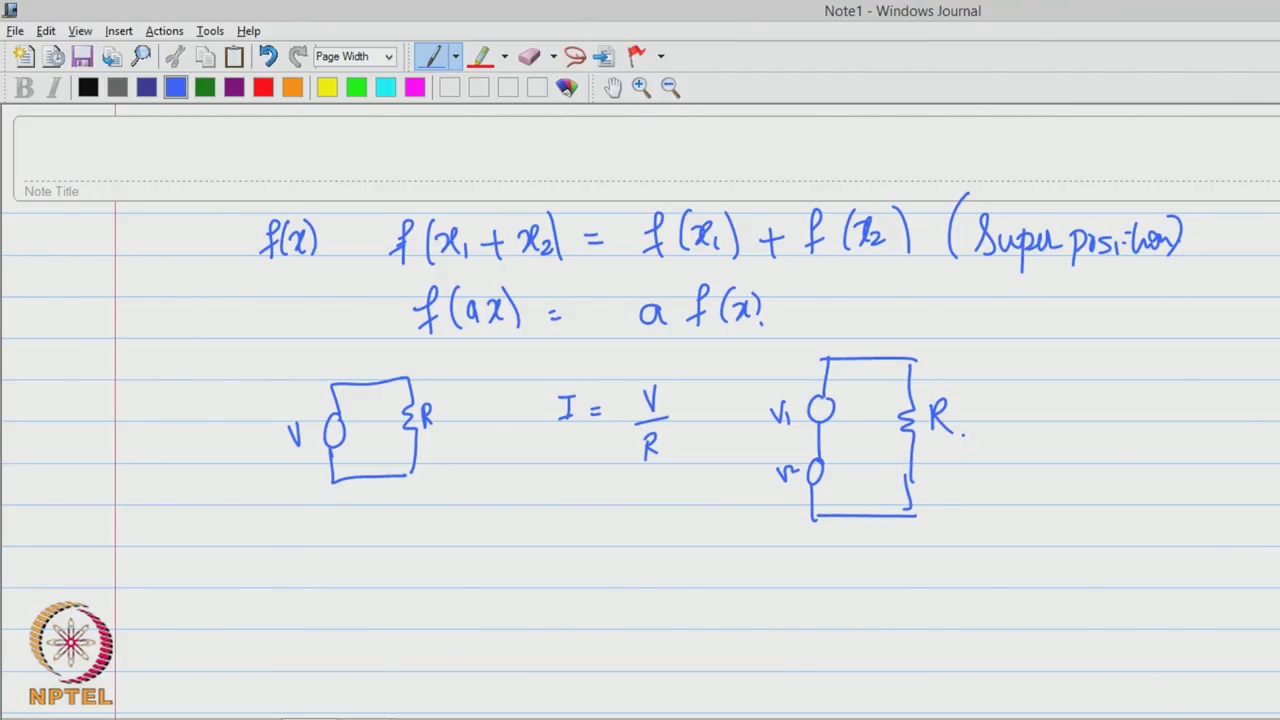 Note1 - Windows Journal
File Edit View Insert Actions Tools Help
Page Width
B I
Note Title
f(x) f(x1 + x2) = f(x1) + f(x2) (Superposition)
f(ax) = a f(x)
V R I = V/R V1 R.
V2
NPTEL